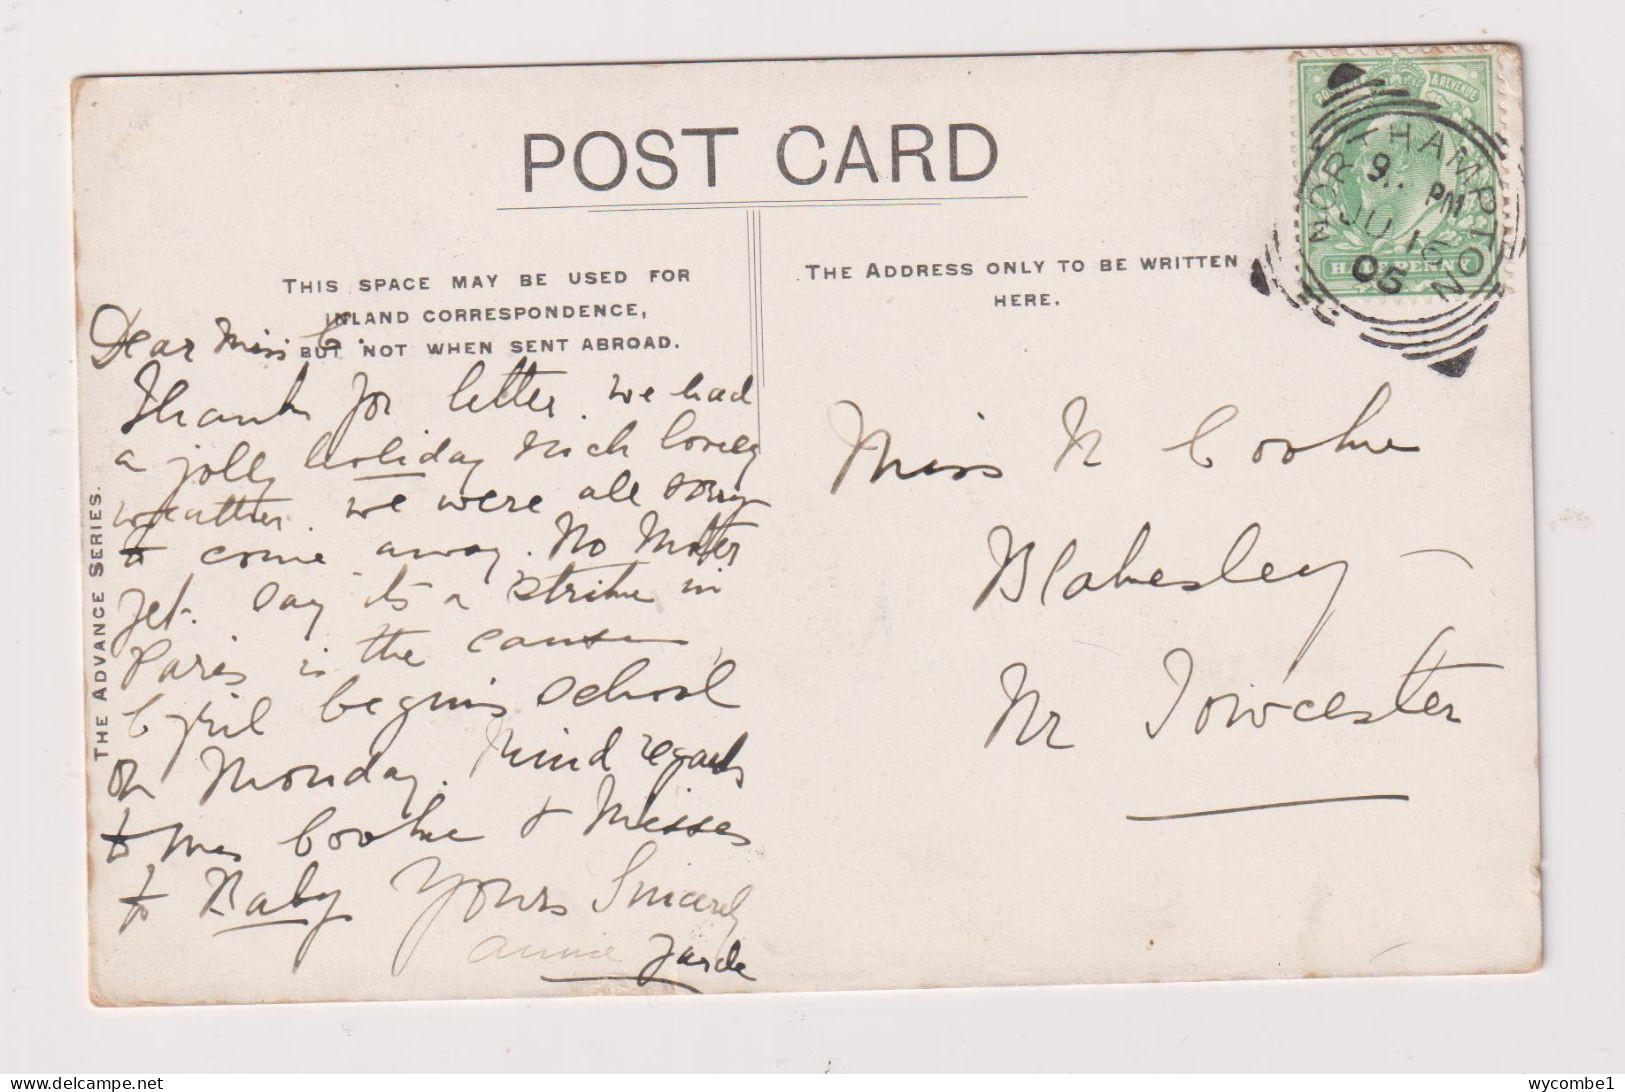 POST CARD
THIS SPACE MAY BE USED FOR
INLAND CORRESPONDENCE,
BUT NOT WHEN SENT ABROAD.
THE ADDRESS ONLY TO BE WRITTEN
HERE.
THE ADVANCE SERIES.
POSTAGE & REVENUE
HALFPENNY
NORTHAMPTON
9.. PM
JU 16
05
Dear Miss C.
Thanks for letter. We had
a jolly holiday such lovely
weather. We were all sorry
to come away. No Motter
yet. Say its a strike in
Paris is the cause
Cyril begins school
on Monday. Kind regards
to Mrs Cooke & Misses
to Baby Yours Sincerely
Annie
Miss N Cooke
Blakesley
Nr Towcester
wycombe1